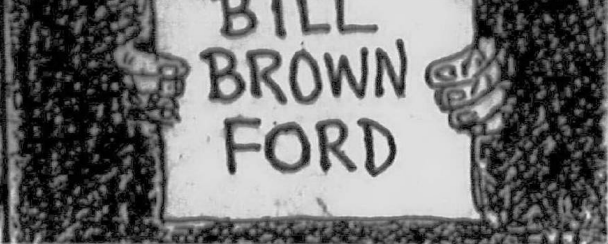 BILL
BROWN
FORD